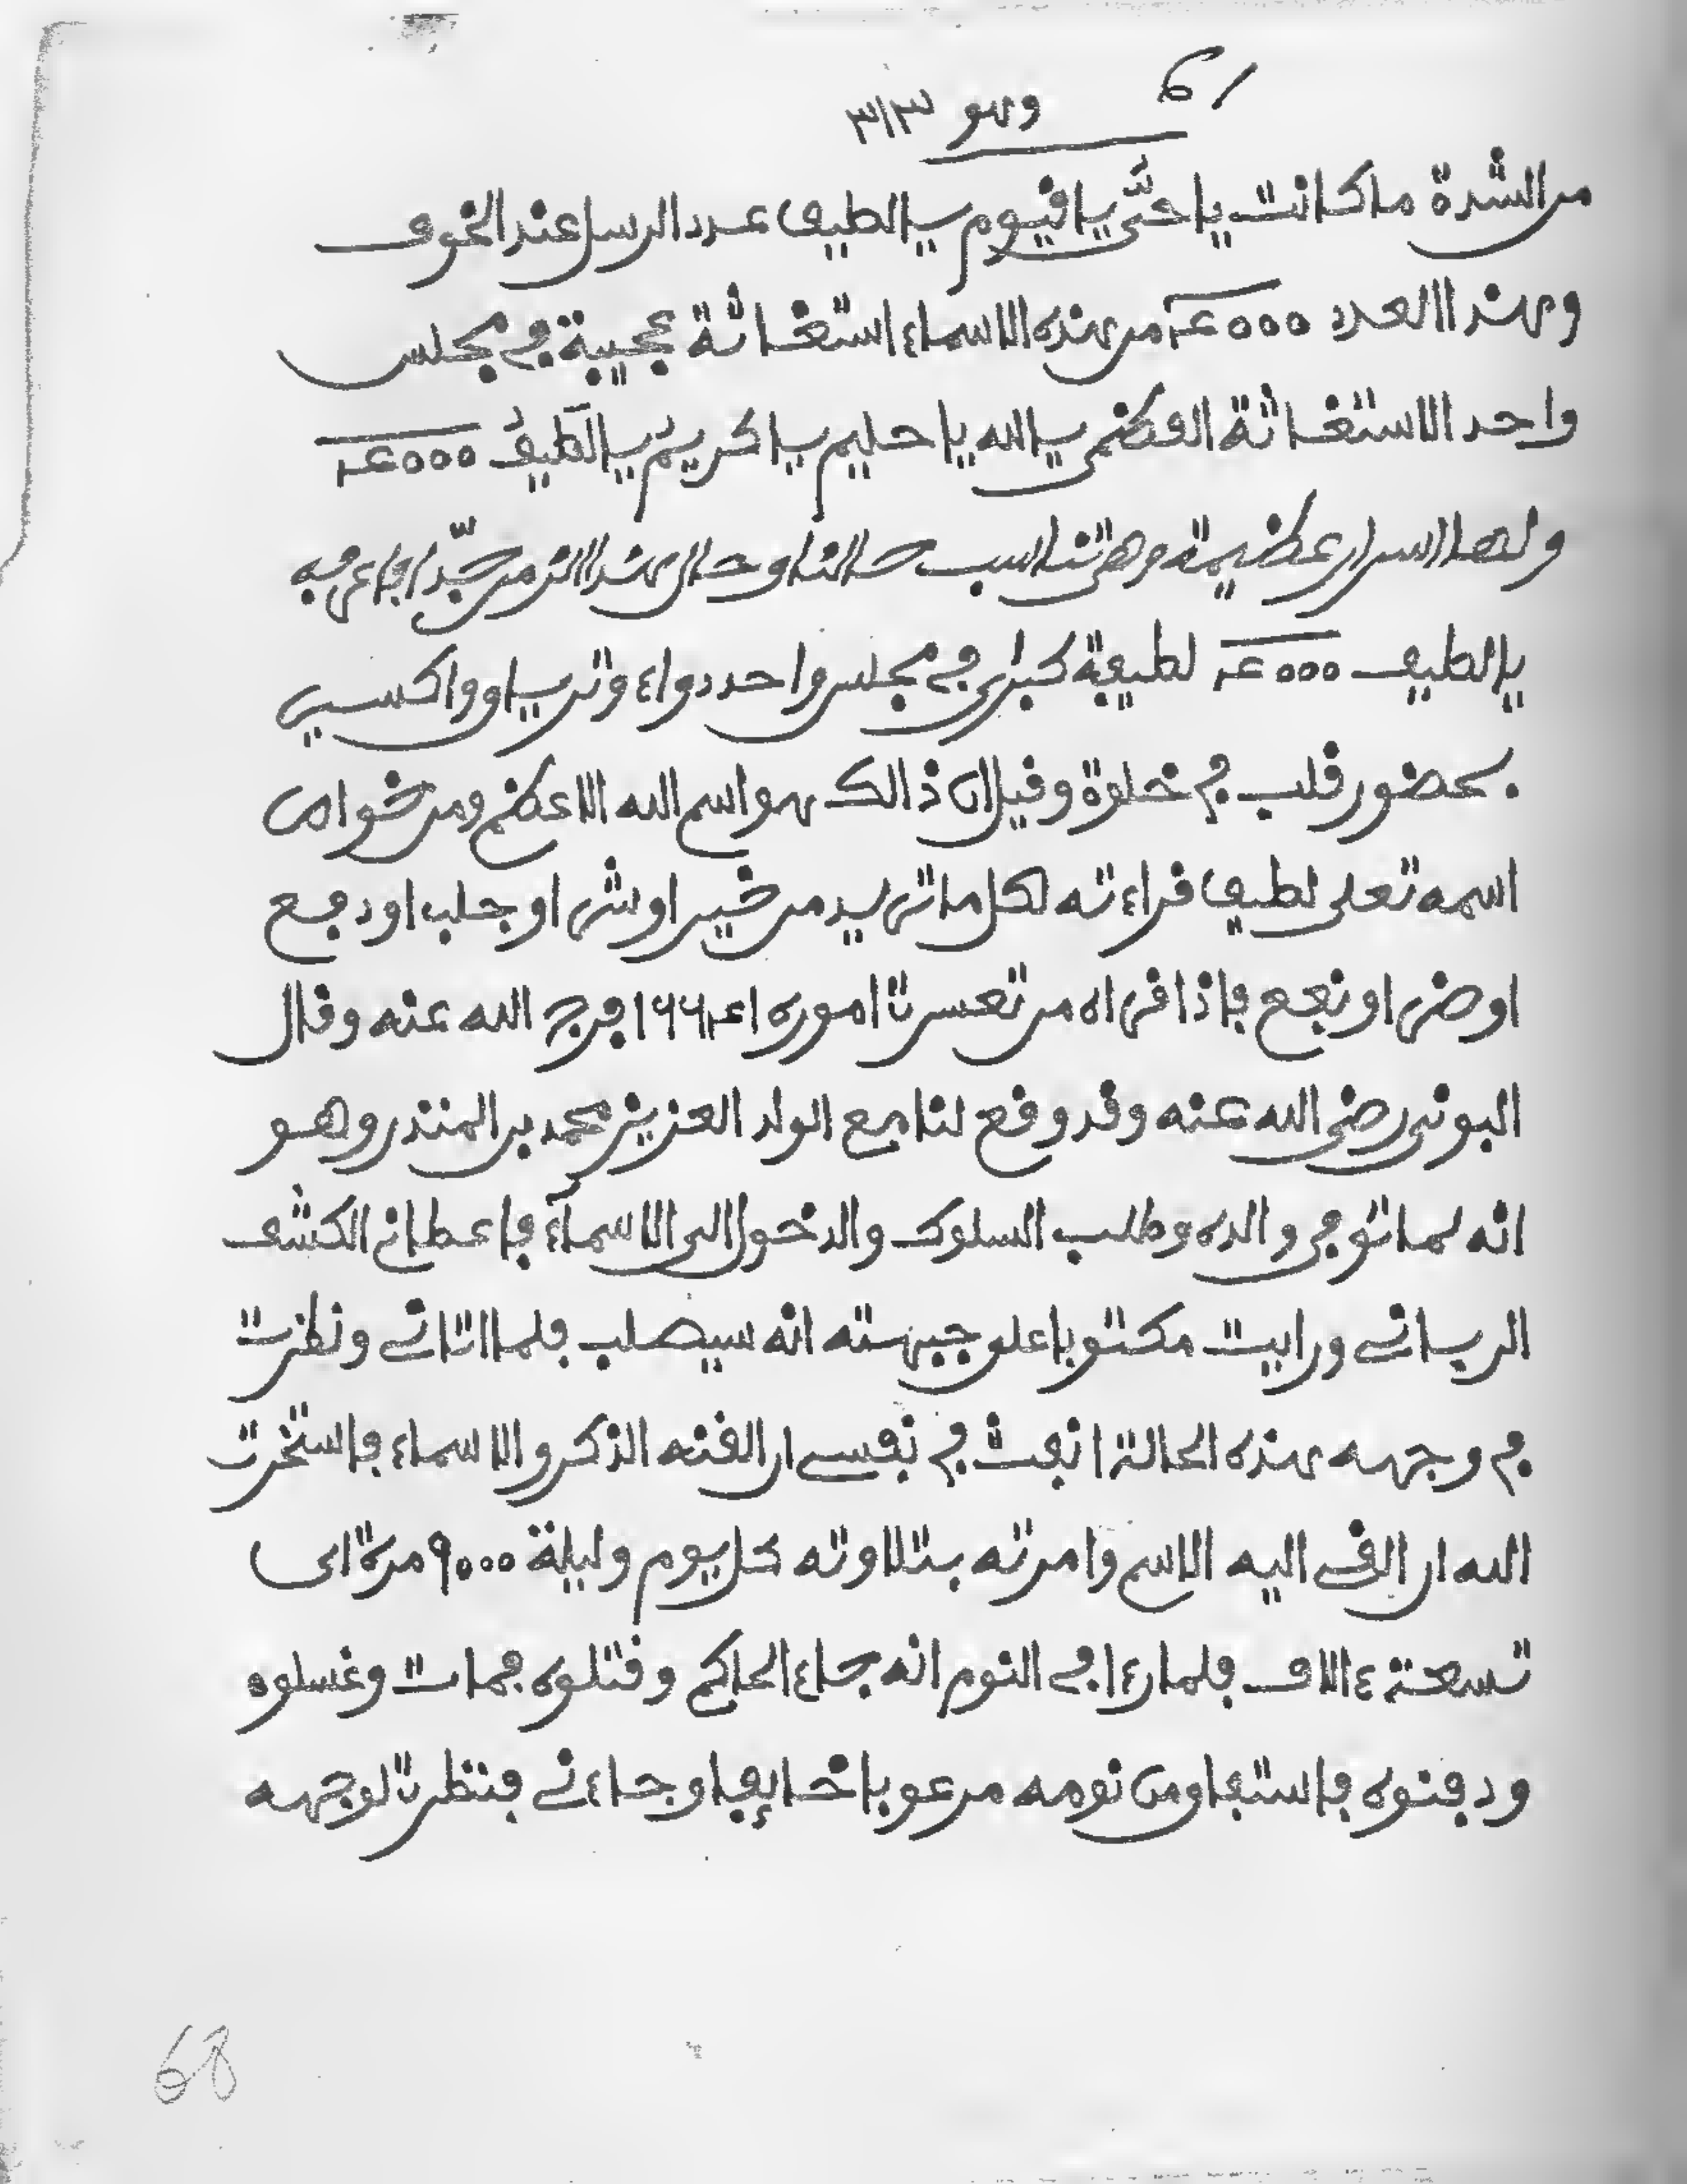 61 وهو ٣١٣
من الشدة ما كانت يا حيّ يا قيوم يا لطيف عدد الرسل عند الخوف
وهذا العدد ٤٠٠٠ من هذه الاسماء استغاثة عجيبة في مجلس
واحد الاستغاثة العظمى يا الله يا حليم يا كريم يا لطيف ٤٠٠٠
ولها اسرار عظيمة وهي تناسب حالنا وحال هذا الزمن جدّا
يا لطيف ٤٠٠٠ لطيفة كبرى في مجلس واحد دواء وترياق واكسير
بحضور قلب في خلوة وقيل ان ذالك هو اسم الله الاعظم ومن خواص
اسمه تعلى لطيف قراءته لكل ما تريد من خير او شر او جلب او دفع
او ضر او نفع فإذا قراه من تعسرت اموره ١٦٦٤١ فرج الله عنه وقال
البوني رضي الله عنه وقد وقع لنا مع الولد العزيز محمد بن المنذر وهو
انه لما توفي والده وطلب السلوك والدخول الى الاسمآء فاعطاني الكشف
الرباني ورايت مكتوبا على جبهته انه سيصلب فلما اتاني ونظرت
في وجهه هذه الحالة انفت في نفسي ان القنه الذكر والاسماء فاستخرت
الله ان القي اليه الاسم وامرته بتلاوته كل يوم وليلة ٩٠٠٠ مرة اى
تسعة ءالاف فلما رءا في النوم انه جاء الحاكم وقتلوه فمات وغسلوه
ودفنوه فاستفاق من نومه مرعوبا خايفا وجاءني فنظرت لوجهه
68